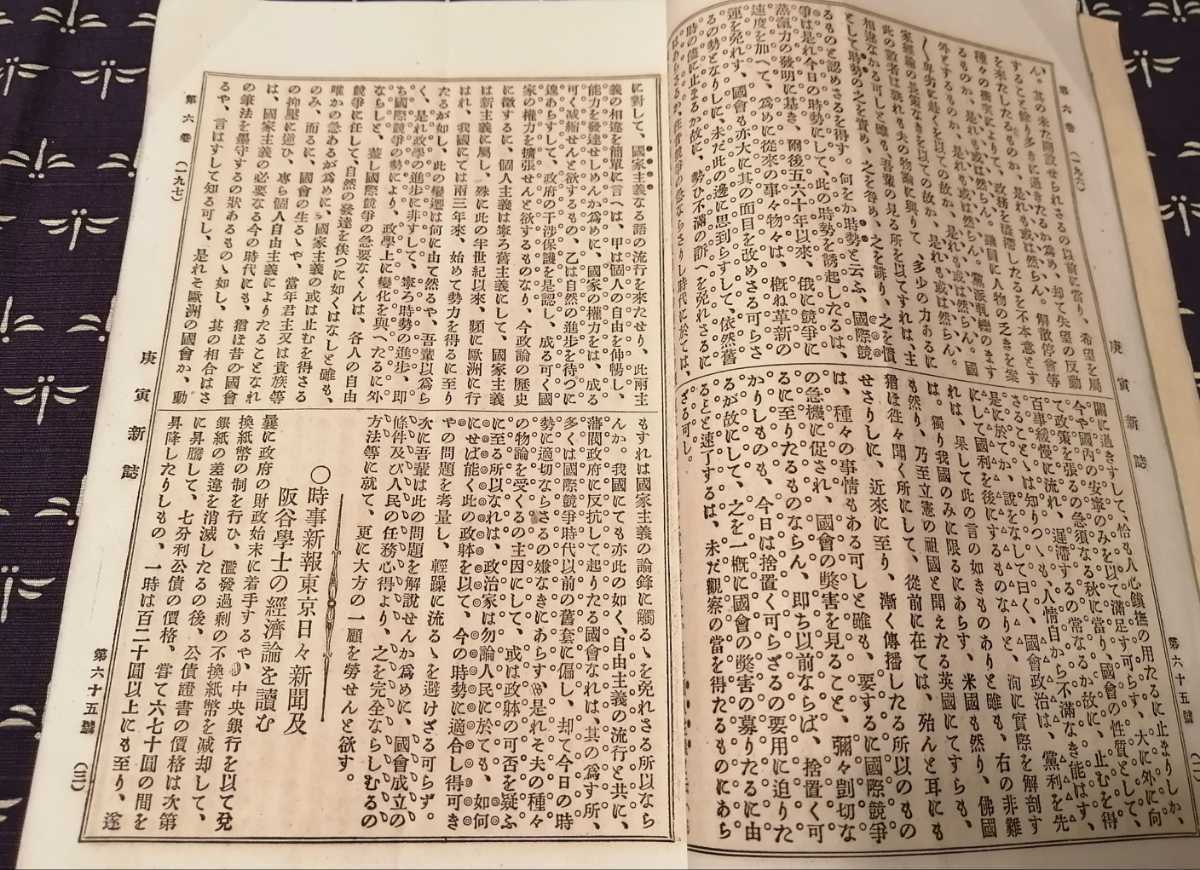 第六卷
(一九六)
庚寅新誌
第六十五號
(二
ん。其の未た開設せられさるの以前に當り、希望を屬
することと餘り多きに過きたるか爲め、却て失望の反動
を來たしたるものか、是れも或は然らん。解散停會等
種々の衝突によりて、政務を澁滯したるを不本意とす
るものか、是れも或は然らん。議員に人物の乏きを案
外とするものか、是れも或は然らん。黨派軋轢のます
〱卑劣に赴くを以ての故か、是れも或は然らん。國
家經綸の長策なきを以ての故か、是れも或は然らん。
此の數者は孰れも夫の物論に與りて、多少の力あるに
相違なかる可しと雖も、吾輩の見る所を以てすれは、主
として時勢の之を責め、之を咎め、之を誹り、之を憤
るものと認めさるを得す。何をか時勢と云ふ、國際競
爭は是れ今日の時勢にして、此の時勢を誘起したるは、
蒸滊力の發明に基き、爾後五六十年以來、俄に競爭に
速度を加へて、爲めに從來の事々物々は、概ね革新の
運を免れす、國會も亦大に其の面目を改めさる可らさ
るの勢となりしに、未だ此の邊に思到らすして、依然舊
時の儘に止まるか故に、勢ひ不滿の訴へを免れさるに
關に過きすして、恰も人心鎭撫の用たるに止まりしか、
今や國内の安寧のみを以て滿足す可らす、大に外に向
て政策を張るの急須なる秋に當り、國會の性質として、
百事緩慢に流れ、遲滯するの常なるか故に、止むを得
さることゝは知りつゝも、人情自から不滿なき能はす、
是に於てか、說をなして曰く、國會政治は、黨利を先
にして國利を後にするものなりと、洵に實際を解剖す
れは、果して此の言の如きものありと雖も、右の非難
は、獨り我國のみに限るにあらす、米國も然り、佛國
も然り、乃至立憲の祖國と聞えたる英國にてすらも、
猶ほ徃々聞く所にして、從前に在ては、殆んと耳にも
せさりしに、近來に至り、漸く傳播したる所以のもの
は、種々の事情もある可しと雖も、要するに國際競爭
の急機に促され、國會の弊害を見ること、彌々剴切な
るに至りたるものならん、即ち以前ならば、捨置く可
かりしものも、今日は捨置く可らざるの要用に迫りた
るが故にして、之を一概に國會の弊害の募りたるに由
るとと速了するは、未だ觀察の當を得たるものにあら
ざる可し。
第六卷
(一九七)
庚寅新誌
第六十五號
(三)
に對して、國家主義なる語の流行を來たせり、此兩主
義の相違を簡單に言へは、甲は個人の自由を伸暢し、
能力を發達せしめんか爲めに、國家の權力をは、成る
可く减縮せんと欲するもの、乙は自然の進步を待つに
遑あらすして、政府の干涉保護を是認し、成る可く國
家の權力を擴張せんと欲するものなり、今政論の歷史
に徵するに、個人主義は寧ろ舊主義にして、國家主義
は新主義に屬し、殊に此の半世紀以來、頗に歐洲に行
はれ、我國にては兩三年來、始めて勢力を得るに至り
たるが如し、此の變遷は何に由て然るや、吾輩以爲ら
く、是れ政學の進步に非すして、寧ろ時勢の進步、即
ち國際競爭の勢により、政學上に變化を與へたるに外
ならしと、葢し國際競爭の急要なくんは、各人の自由
競爭に任して、自然の發達を俟つに如くはなしと雖も、
唯かの急あるが爲めに、國家主義の或は止むを得さる
のみ、而るに、國會の生るゝや、當年君主又は貴族等
の抑壓に遭ひ、專ら個人自由主義によりたることなれ
は、國家主義の必要なる今の時代にも、猶ほ昔の國會
の筆法を墨守するの狀あるものゝ如し、其の相合はさ
るや、言はすして知る可し、是れそ歐洲の國會か、動
もすれは國家主義の論鋒に觸るゝを免れさる所以なら
んか。我國にても亦此の如く、自由主義の流行と共に、
藩閥政府に反抗して起りたる國會なれは、其の爲す所、
多くは國際競爭時代以前の舊套に偏し、却て今日の時
勢に適切ならさるの嫌なきにあらす、是れそ夫の種々
の物論を受くるの主因にして、或は政躰の可否を疑ふ
に至る所以なれは、政治家は勿論人民に於ても、如何
にせば能く此の政躰を以て、今の時勢に適合し得可き
やの問題を考量し、輕躁に流るゝを避けざる可らず。
次に吾輩は此の問題を解說せんか爲めに、國會成立の
條件及び人民の任務心得より、之を完全ならしむるの
方法等に就て、更に大方の一顧を勞せんと欲す。
○時事新報東京日々新聞及
阪谷學士の經濟論を讀む
曩に政府の財政始末に着手するや、中央銀行を以て兌
換紙幣の制を行ひ、濫發過剩の不換紙幣を减却して、
銀紙の差違を消滅したるの後、公債證書の價格は次第
に昇騰して、七分利公債の價格、甞て六七十圓の間を
昇降したりしもの、一時は百二十圓以上にも至り、遂